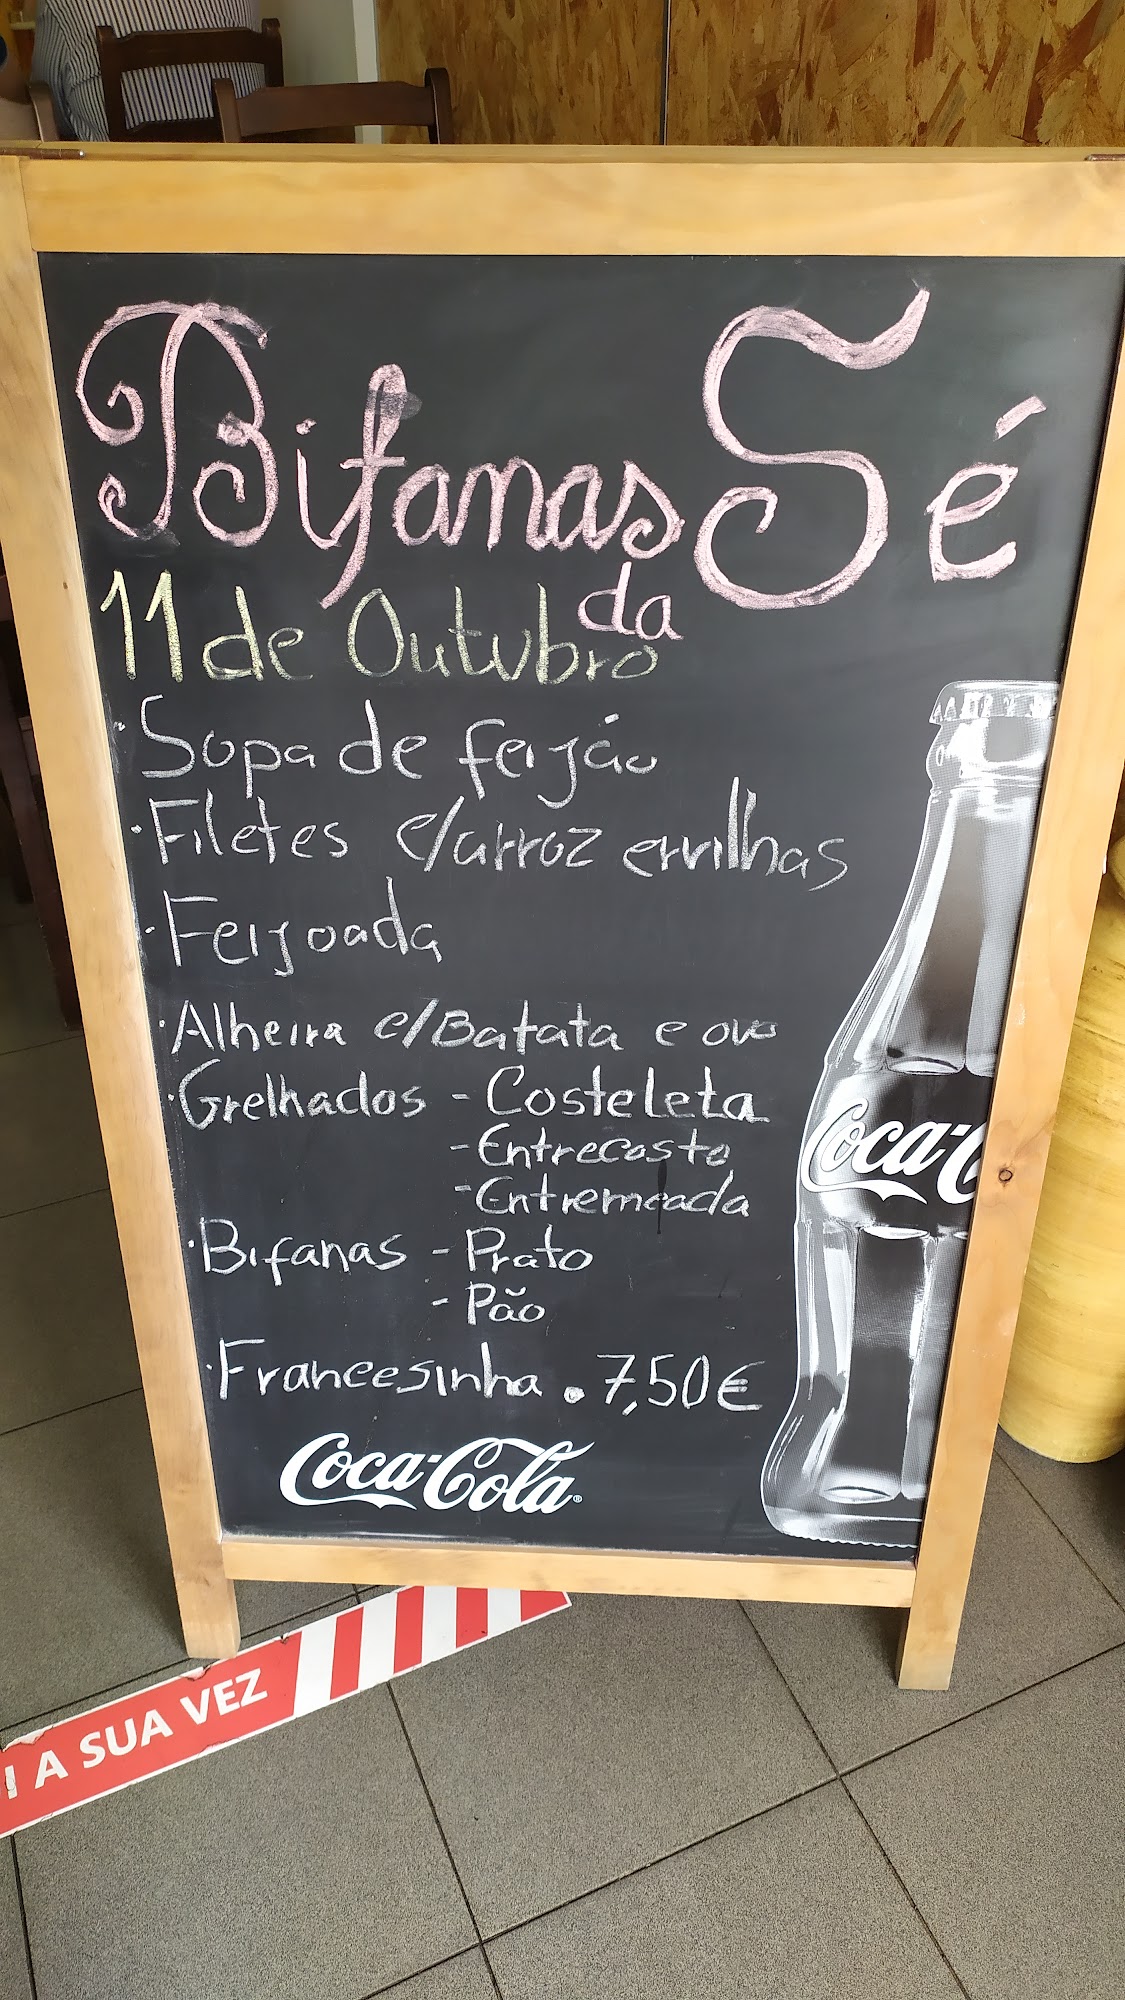 Bifanas da Sé
11 de Outubro
· Sopa de feijão
· Filetes c/arroz ervilhas
· Feijoada
· Alheira c/Batata e ovo
· Grelhados - Costeleta
- Entrecosto
- Entremeada
· Bifanas - Prato
- Pão
· Francesinha . 7,50€
Coca-Cola
Coca-C
I A SUA VEZ